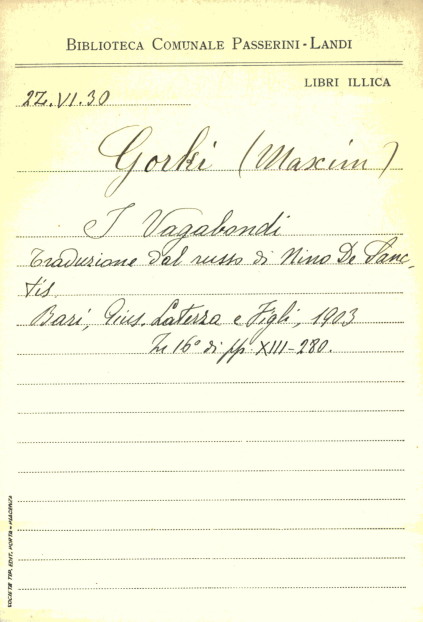 BIBLIOTECA COMUNALE PASSERINI-LANDI
LIBRI ILLICA
27.VI.30
Gorki (Maxim)
I Vagabondi
Traduzione dal russo di Nino De Sanc-
tis.
Bari, Gius. Laterza e Figli, 1903
In 16° di pp. XIII-280.
SOCIETÀ TIP. EDIT. PORTA - PIACENZA